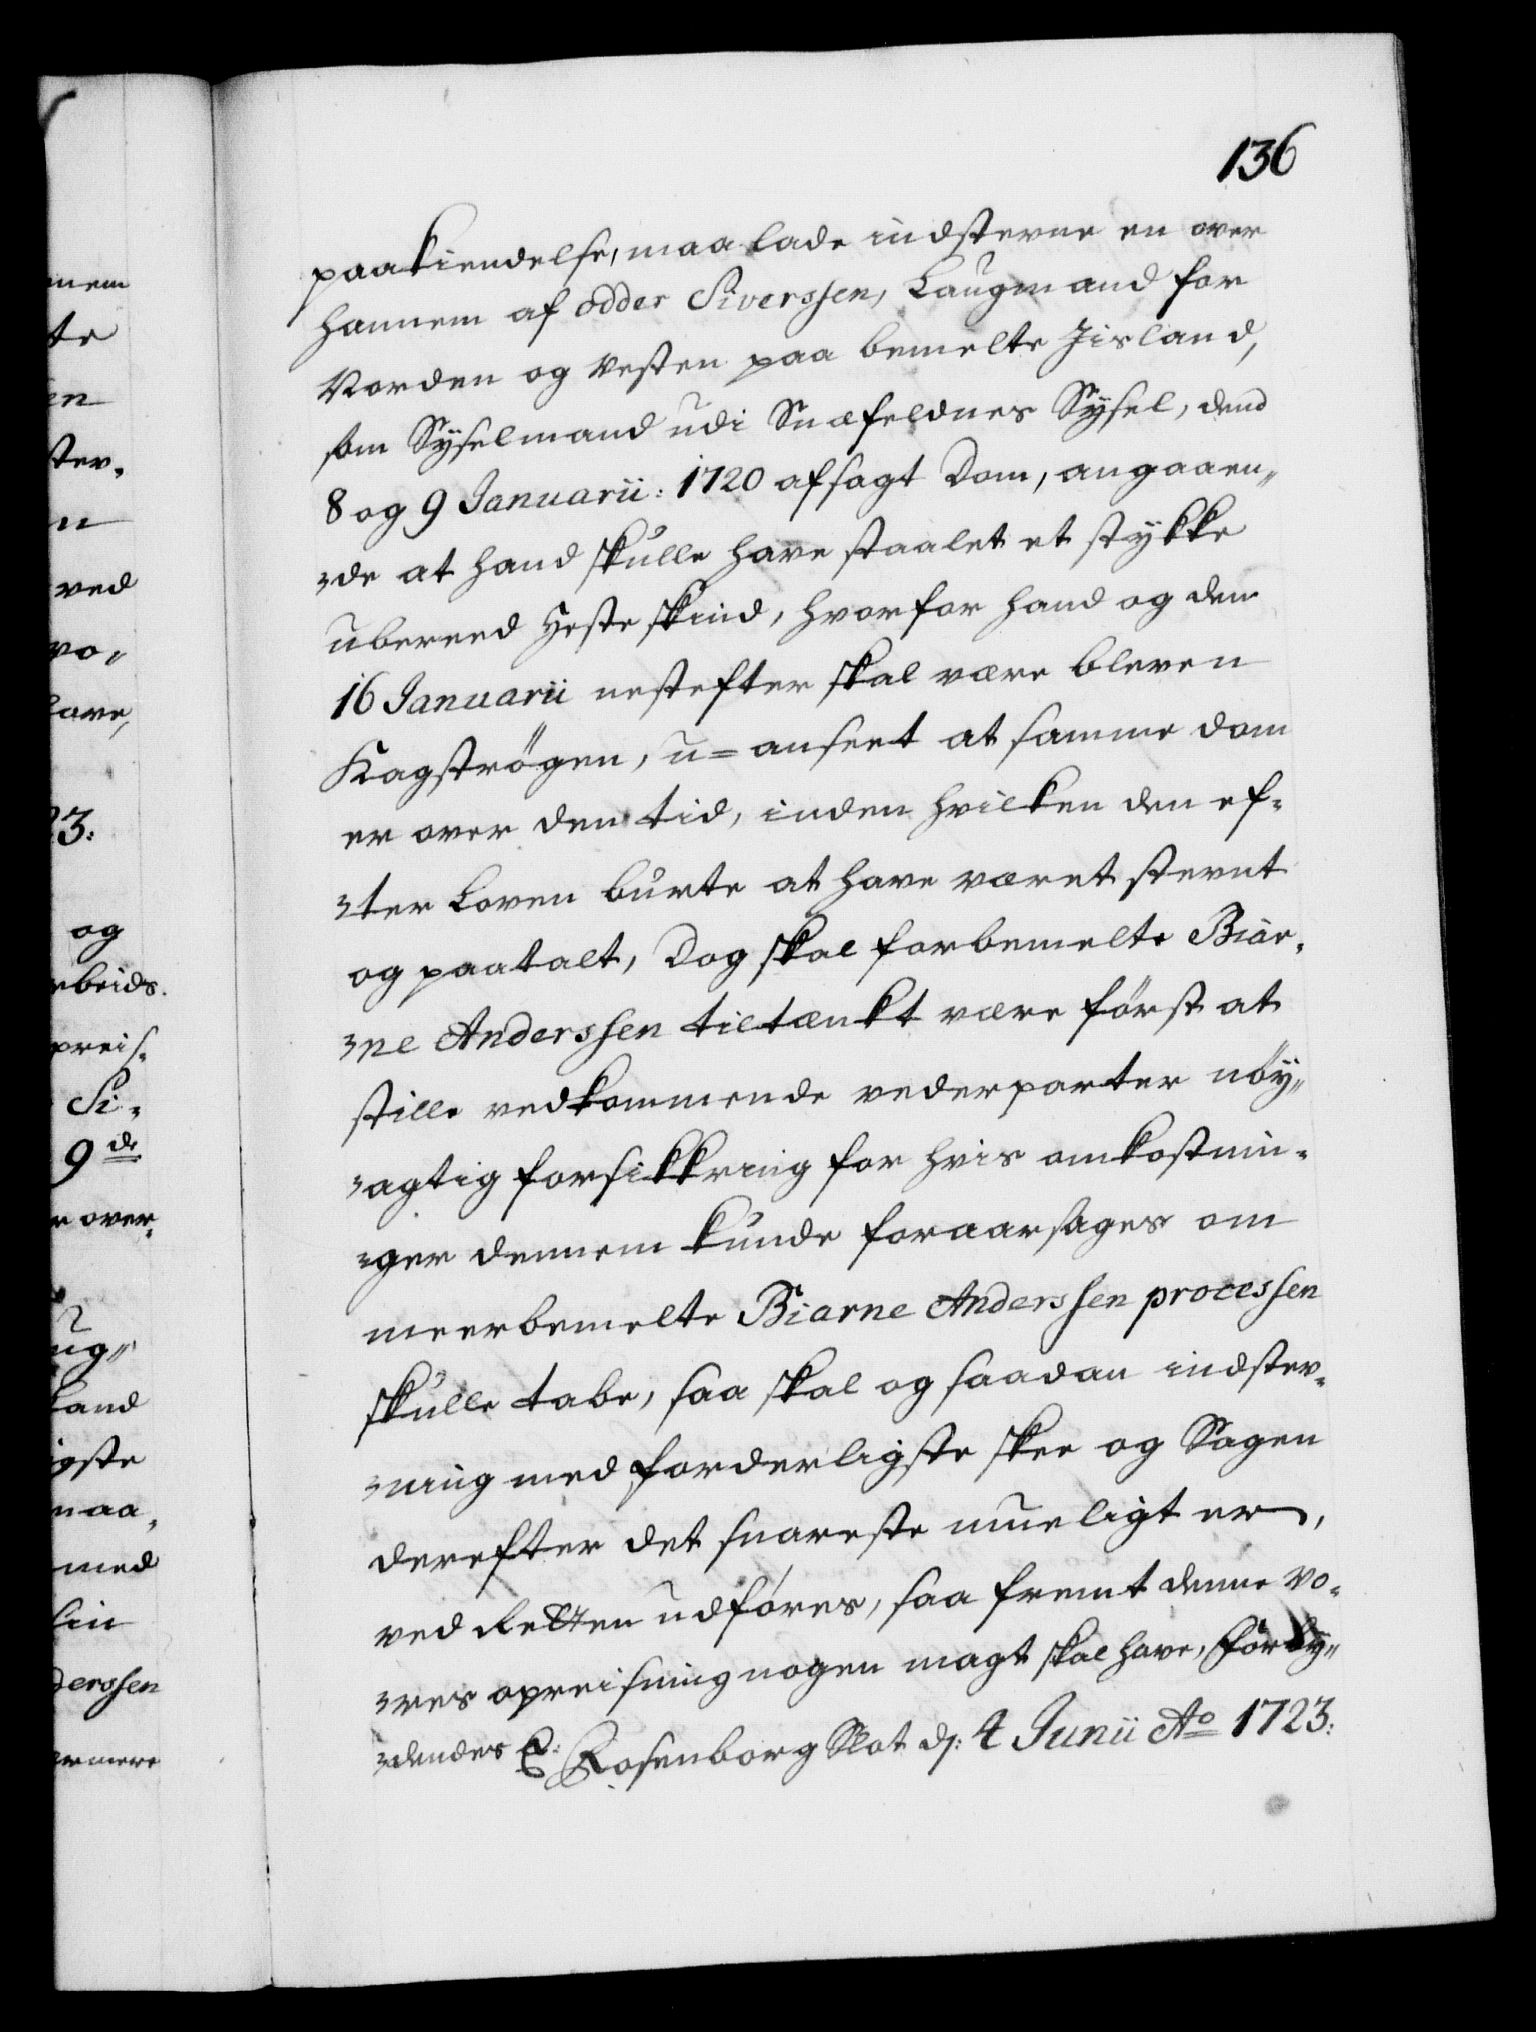 136
paakiendelse, maa lade indstevne en over
hannem af Odder Siverssen, Laugmand for
Norden og Vesten paa bemelte Jisland,
som Sÿselmand udi Snæfeldnes Sÿsel, dend
8 og 9 Januarii: 1720 afsagt Dom, angaaen„
„de at hand skulle have staalet et stykke
ubereed Hesteskind, hvorfor hand og den
16 Januarii nestefter skal være bleven
Kagströgen, u=anseet at samme dom
er over den tid, inden hvilken den ef-
„ter Loven burte at have været stevnt
og paatalt, Dog skal forbemelte Biar-
„ne Anderssen tiltænkt være först at
stille vedkommende vederparter nöÿ„
„agtig forsikkring for hvis omkostnin-
„ger dennem kunde foraarsages om
meerbemelte Biarne Anderssen processen
skulle tabe, saa skal og saadan indstev-
„ning med forderligste skee og Sagen
derefter det snareste mueligt er,
ved Retten udföres, saa fremt denne vo-
„res opreisning nogen magt skal have, Forbÿ„
„dendes E: Rosenborg Slot d: 4 Junii Ao 1723:
nem
te
en
ster-
n
ved
vo„
lave,
23:
og
rbeids-
preis-
Si-
9 de
r over-
ug„
land
igste
maa-
med
lin
derssen
ermere